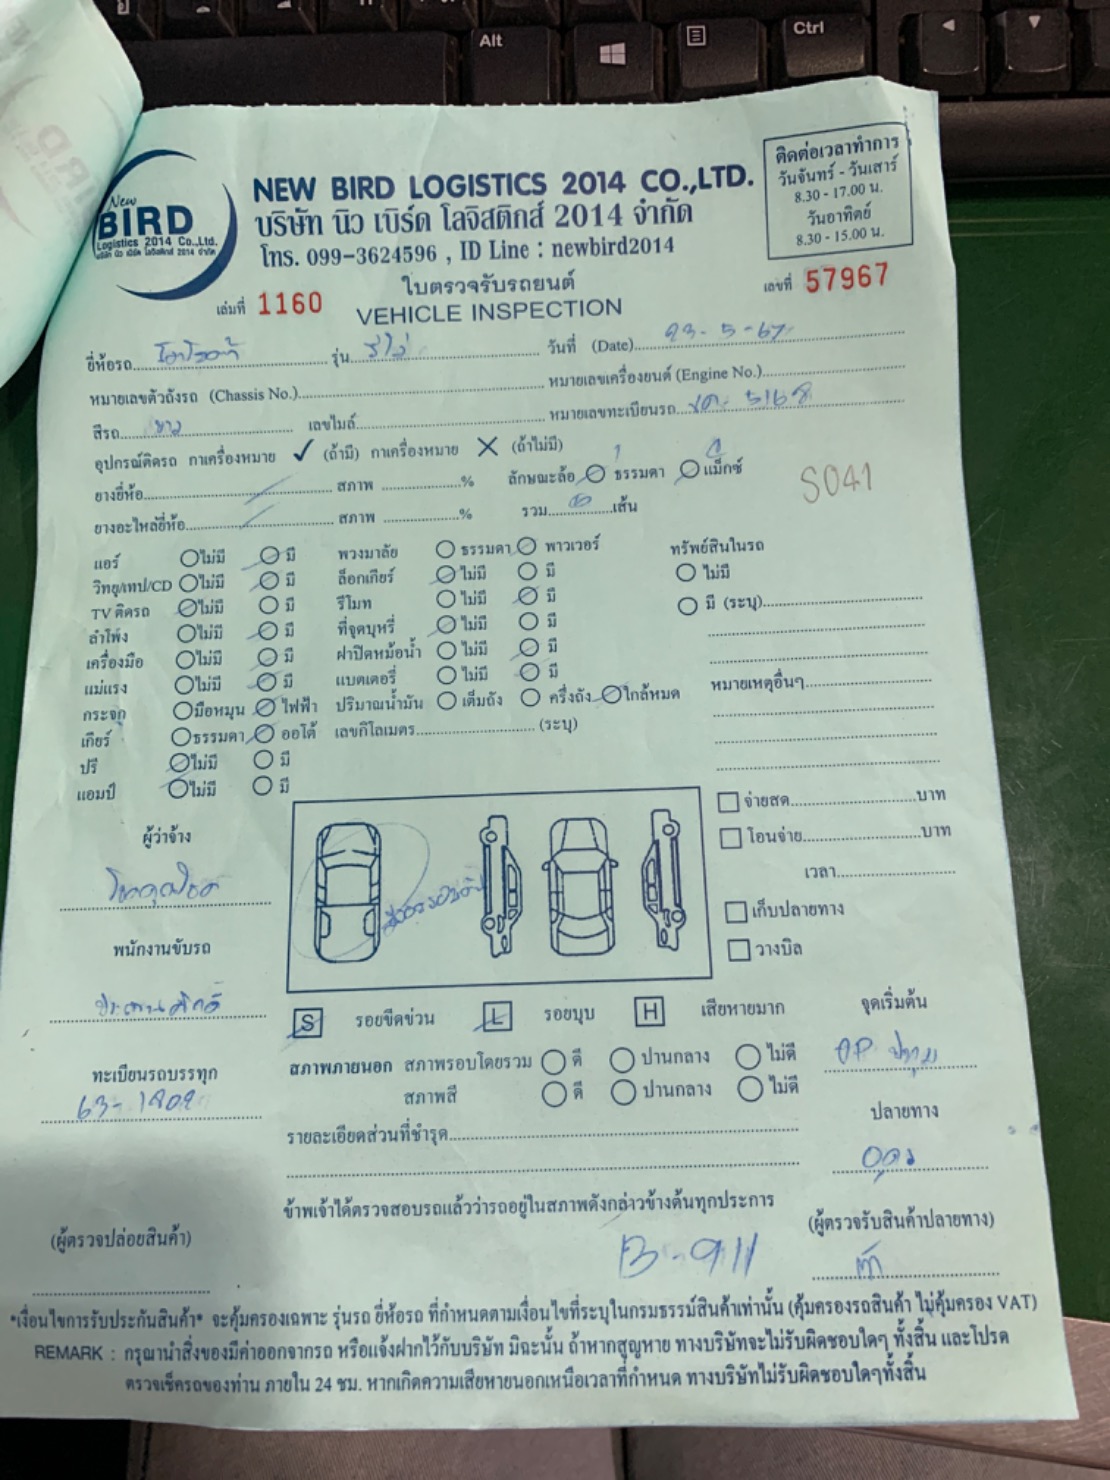 Alt
Ctrl
New
BIRD
Logistics 2014 Co.,Ltd.
บริษัท นิว เบิร์ด โลจิสติกส์ 2014 จำกัด
NEW BIRD LOGISTICS 2014 CO.,LTD.
บริษัท นิว เบิร์ด โลจิสติกส์ 2014 จำกัด
โทร. 099-3624596 , ID Line : newbird2014
ติดต่อเวลาทำการ
วันจันทร์ - วันเสาร์
8.30 - 17.00 น.
วันอาทิตย์
8.30 - 15.00 น.
ใบตรวจรับรถยนต์
เล่มที่ 1160
VEHICLE INSPECTION
เลขที่ 57967
ยี่ห้อรถ รุ่น วันที่ (Date) 23-5-67
หมายเลขตัวถังรถ (Chassis No.) หมายเลขเครื่องยนต์ (Engine No.)
สีรถ ขาว เลขไมล์ หมายเลขทะเบียนรถ 5168
อุปกรณ์ติดรถ กาเครื่องหมาย ✓ (ถ้ามี) กาเครื่องหมาย ✕ (ถ้าไม่มี)
ยางยี่ห้อ สภาพ % ลักษณะล้อ ธรรมดา แม็กซ์
S041
ยางอะไหล่ยี่ห้อ สภาพ % รวม เส้น
แอร์ ไม่มี มี พวงมาลัย ธรรมดา พาวเวอร์ ทรัพย์สินในรถ
วิทยุ/เทป/CD ไม่มี มี ล็อกเกียร์ ไม่มี มี ไม่มี
TV ติดรถ ไม่มี มี รีโมท ไม่มี มี มี (ระบุ)
ลำโพง ไม่มี มี ที่จุดบุหรี่ ไม่มี มี
เครื่องมือ ไม่มี มี ฝาปิดหม้อน้ำ ไม่มี มี
แม่แรง ไม่มี มี แบตเตอรี่ ไม่มี มี หมายเหตุอื่นๆ
กระจก มือหมุน ไฟฟ้า ปริมาณน้ำมัน เต็มถัง ครึ่งถัง ใกล้หมด
เกียร์ ธรรมดา ออโต้ เลขกิโลเมตร (ระบุ)
ปรี ไม่มี มี
แอมป์ ไม่มี มี
จ่ายสด บาท
โอนจ่าย บาท
เวลา
เก็บปลายทาง
วางบิล
ผู้ว่าจ้าง
พนักงานขับรถ
ทะเบียนรถบรรทุก
63-1902
S รอยขีดข่วน L รอยบุบ H เสียหายมาก
จุดเริ่มต้น
สภาพภายนอก สภาพรอบโดยรวม ดี ปานกลาง ไม่ดี
สภาพสี ดี ปานกลาง ไม่ดี
ปลายทาง
อุดร
รายละเอียดส่วนที่ชำรุด
ข้าพเจ้าได้ตรวจสอบรถแล้วว่ารถอยู่ในสภาพดังกล่าวข้างต้นทุกประการ
(ผู้ตรวจปล่อยสินค้า)
(ผู้ตรวจรับสินค้าปลายทาง)
B-911
*เงื่อนไขการรับประกันสินค้า* จะคุ้มครองเฉพาะ รุ่นรถ ยี่ห้อรถ ที่กำหนดตามเงื่อนไขที่ระบุในกรมธรรม์สินค้าเท่านั้น (คุ้มครองรถสินค้า ไม่คุ้มครอง VAT)
REMARK : กรุณานำสิ่งของมีค่าออกจากรถ หรือแจ้งฝากไว้กับบริษัท มิฉะนั้น ถ้าหากสูญหาย ทางบริษัทจะไม่รับผิดชอบใดๆ ทั้งสิ้น และโปรด
ตรวจเช็ครถของท่าน ภายใน 24 ชม. หากเกิดความเสียหายนอกเหนือเวลาที่กำหนด ทางบริษัทไม่รับผิดชอบใดๆทั้งสิ้น